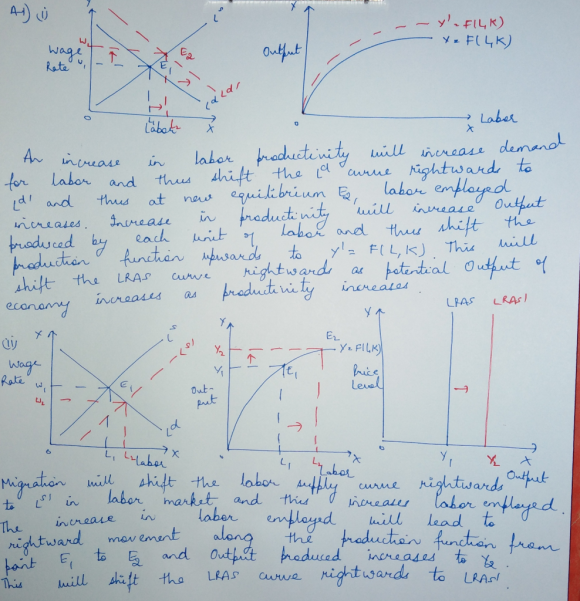 A-1) (i)
Y
L^s
Wage
Rate
W2
W1
E2
E1
L^d
L^d'
O
L1
L2
Labor
X
Y
Output
Y' = F(L,K)
Y = F(L,K)
O
X
Labor
An increase in labor productivity will increase demand
for labor and thus shift the L^d curve rightwards to
L^d' and thus at new equilibrium E2, labor employed
increases. Increase in productivity will increase Output
produced by each unit of labor and thus shift the
production function upwards to Y' = F(L,K) This will
shift the LRAS curve rightwards as potential Output of
economy increases as productivity increases.
(ii)
X
L^s
L^s'
Wage
Rate
W1
W2
E1
E2
L^d
L1
L2
Labor
X
Y
Y2
Y1
Out-
put
E2
Y=F(L,K)
e1
L1
L2
Labor
X
Y
LRAS
LRAS'
Price
Level
Y1
Y2
X
Output
Migration will shift the labor supply curve rightwards
to L^s' in labor market and this increases labor employed.
The increase in labor employed will lead to
rightward movement along the production function from
point E1 to E2 and Output produced increases to Y2.
This will shift the LRAS curve rightwards to LRAS'